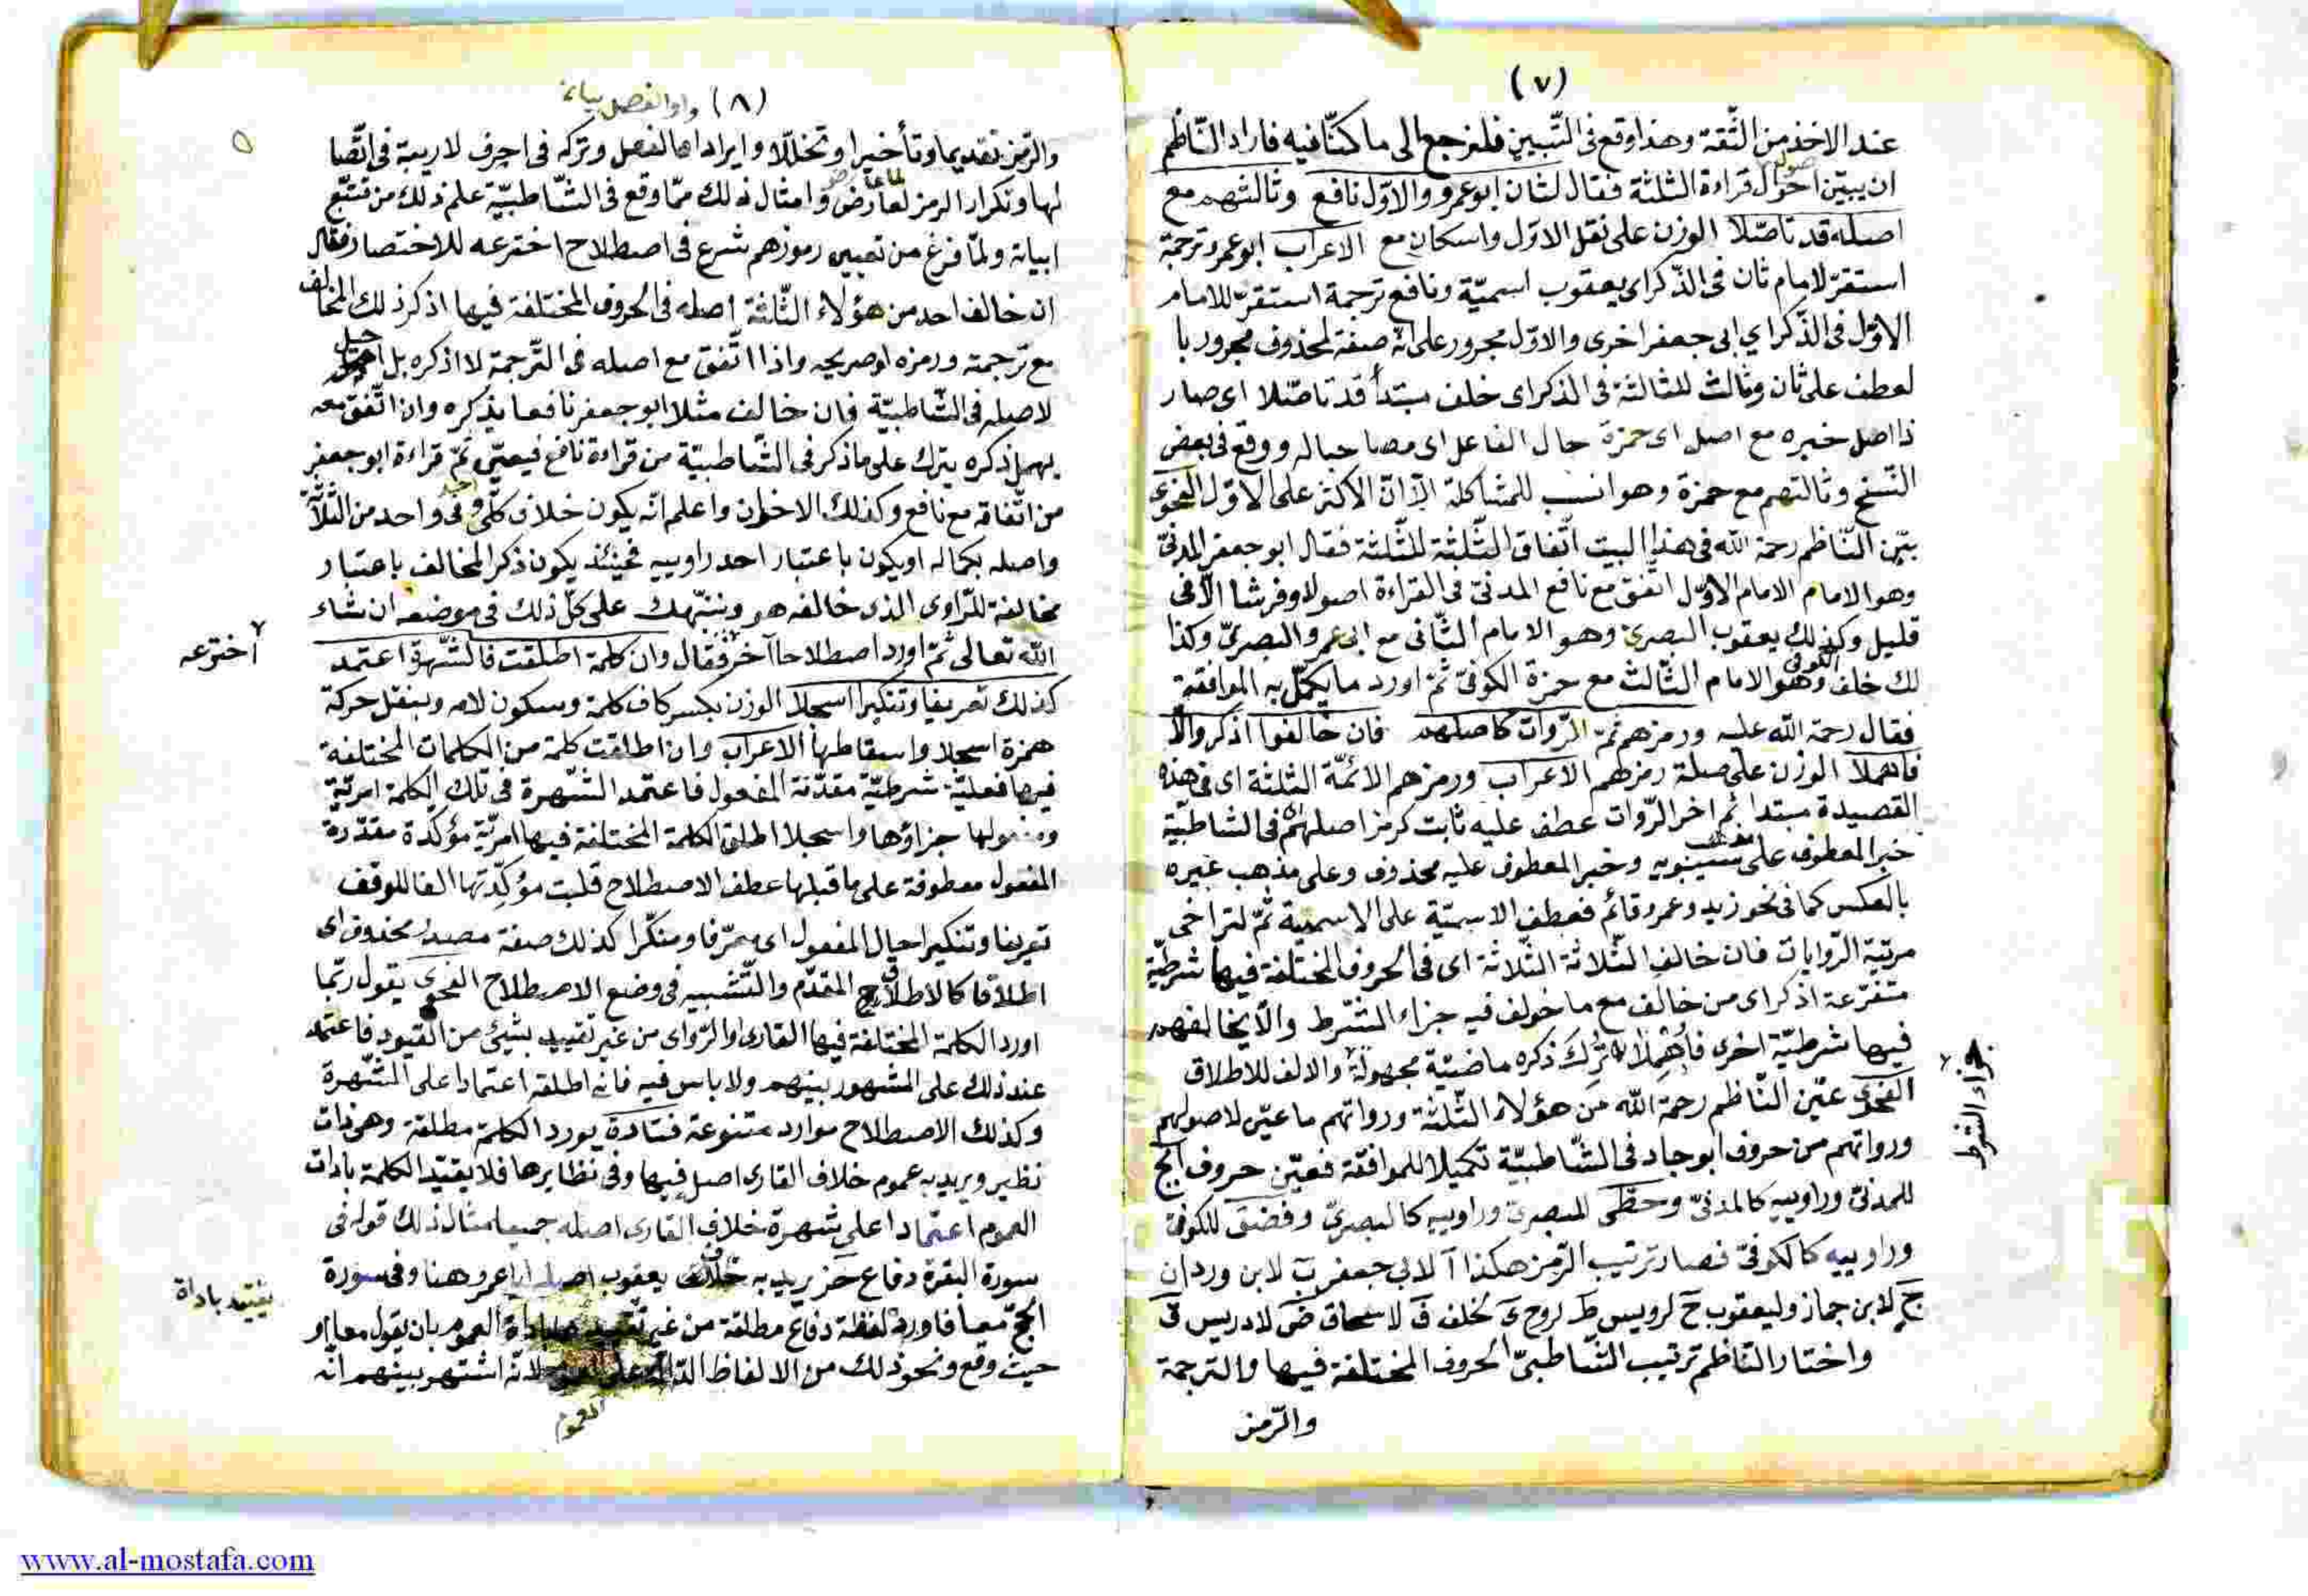 (٧)
عند الاخذ من الثّقة وهذا وقع فى التّبيين فلنرجع الى ما كنّا فيه فاراد النّاظم
ان يبيّن احوال قراءة الثلثة فقال لثان ابوعمرو والاوّل نافع وثالثهم مع
اصله قد تاصّلا الوزن على نقل الاوّل واسكان مع الاعراب ابوعمرو ترجمة
استقرّ لامام ثان فى الذّكر اى يعقوب اسميّة ونافع ترجمة استقرّ للامام
الاوّل فى الذّكر اي ابى جعفر اخرى والاوّل مجرور على انّه صفة لمحذوف مجرور با
لعطف على ثان وثالث للثالثة فى الذكر اى خلف مبتدأ قد تاصّلا اى صار
ذا اصل خبره مع اصل اى حمزة حال الفاعل اى مصاحبا له ووقع فى بعض
النّسخ وثالثهم مع حمزة وهو انسب للمشاكلة الّا انّ الاكثر على الاوّل الفحوى
بيّن النّاظم رحمة الله فى هذا البيت اتّفاق الثّلثة للثّلثة فقال ابو جعفر المدنىّ
وهو الامام الامام الاوّل اتّفق مع نافع المدنىّ فى القراءة اصولا وفرشا الّا فى
قليل وكذلك يعقوب البصرىّ وهو الامام الثّانى مع ابى عمرو البصرىّ وكذا
لك خلف الكوفى وهو الامام الثّالث مع حمزة الكوفىّ ثمّ اورد ما يكمّل به الموافقة
فقال رحمة الله عليه ورمزهم ثمّ الرّوات كاصلهم فان خالفوا اذكر والّا
فاهملا الوزن على صلة رمزهم الاعراب ورمزهم الائمّة الثلثة اى فى هذه
القصيدة مبتدا ثم اخر الرّوات عطف عليه ثابت كرمز اصلهم فى الشاطبيّة
خبر المعطوف على سيبويه وخبر المعطوف عليه محذوف وعلى مذهب غيره
بالعكس كما فى نحو زيد وعمرو قائم فعطف الاسميّة على الاسمية ثمّ لتراخى
مرتبة الرّوايات فان خالف الثّلاثة الثّلاثة اى فى الحروف المختلفة فيها شرطيّة
متفرّعة اذكر اى من خالف مع ما خولف فيه جزاء الشّرط والّا يخالفهم
فيها شرطيّة اخرى فأُهْمِلا تُرِكَ ذكره ماضيّة مجهولة والالف للاطلاق
جزاء الشرط
الفحوى عيّن النّاظم رحمة الله من هؤلاء الثّلثة ورواتهم ما عيّن لاصولهم
ورواتهم من حروف ابوجاد فى الشّاطبيّة تكميلا للموافقة فعيّن حروف ابج
للمدنىّ وراوييه كالمدنىّ وحطّى للبصرىّ وراوييه كالبصرىّ وفضق للكوفىّ
وراوييه كالكوفىّ فصار ترتيب الرّمز هكذا آ لابي جعفر ب لابن وردان
ج لابن جماز وليعقوب ح لرويس ط لروح ى لخلف ف لاسحاق ض لادريس ق
واختار النّاظم ترتيب الشّاطبىّ الحروف المختلفة فيها والترجمة
والرّمز
(٨) واو الفصل بيانه
والرّمز تقديما وتأخيرا وتخلّلا وايراد ها لفصل وتركه فى احرف لا ريبة فى اتّصا
لها وتكرار الرمز لعارض وامثال ذلك ممّا وقع فى الشّاطبيّة علم ذلك من تتبّع
ابياته ولمّا فرغ من تعيين رموزهم شرع فى اصطلاح اخترعه للاختصار فقال
ان خالف احد من هؤلاء الثّلثة اصله فى الحروف المختلفة فيها اذكر ذلك المخالف
مع ترجمته ورمزه او صريحه واذا اتّفق مع اصله فى التّرجمة لا اذكره بل
لاصله فى الشّاطبيّة فان خالف مثلا ابو جعفر نافعا يذكره وان اتّفق معه
يهمل ذكره يترك على ما ذكر فى الشّاطبيّة من قراءة نافع فيعيّن ثمّ قراءة ابو جعفر
من اتّفاقه مع نافع وكذلك الاخوان واعلم انّه يكون خلاف كلّى فى واحد من الثّلاثة
واصله بكماله او يكون باعتبار احد راوييه فحينئذ يكون ذكر المخالف باعتبار
مخالفة للرّاوى الذى خالفه هو وننبّهك على كلّ ذلك فى موضعه ان شاء
الله تعالى ثمّ اورد اصطلاحا آخر فقال وان كلمة اطلقت فالشّهرة اعتمد
اخترعه
كذلك تعريفا وتنكيرا اسجلا الوزن بكسر كاف كلمة وسكون لامه وبنقل حركة
همزة اسجلا واسقاطها الاعراب وان اطلقت كلمة من الكلمات المختلفة
فيها فعليّة شرطيّة مقدّمة المفعول فاعتمد الشّهرة فى تلك الكلمة امريّة
ومفعولها جزاؤها واسجلا اطلق الكلمة المختلفة فيها امريّة مؤكّدة مقدّرة
المفعول معطوفة على ما قبلها عطف الاصطلاح قلبت مؤكّدتها الفا للوقف
تعريفا وتنكيرا حال المفعول اى معرّفا ومنكّرا كذلك صفة مصدر محذوف اى
اطلاقا كالاطلاق المقدّم والتّشبيه فى وضع الاصطلاح الفحوى يقول ربّما
اورد الكلمة المختلفة فيها القارى والرّواى من غير تقييد بشيئ من القيود فاعتمد
عند ذلك على المشهور بينهم ولا باس فيه فانه اطلقه اعتمادا على الشّهرة
وكذلك الاصطلاح موارد متنوعة فتارة يورد الكلمة مطلقة وهى ذات
نظير ويريد به عموم خلاف القارى اصل فيها وفى نظايرها فلا يقيّد الكلمة باداة
العموم اعتمادا على شهرة خلاف القارى اصله جميعا مثال ذلك قوله فى
سورة البقرة دفاع حز يريد به خلاف يعقوب اصله ابا عمرو هنا وفى سورة
الحجّ معا فاورد لفظة دفاع مطلقة من غير باداة العموم بان يقول معا او
يقيّد باداة
حيث وقع ونحو ذلك من الالفاظ الدّالة على لانّه اشتهر بينهم انّه
العموم
www.al-mostafa.com